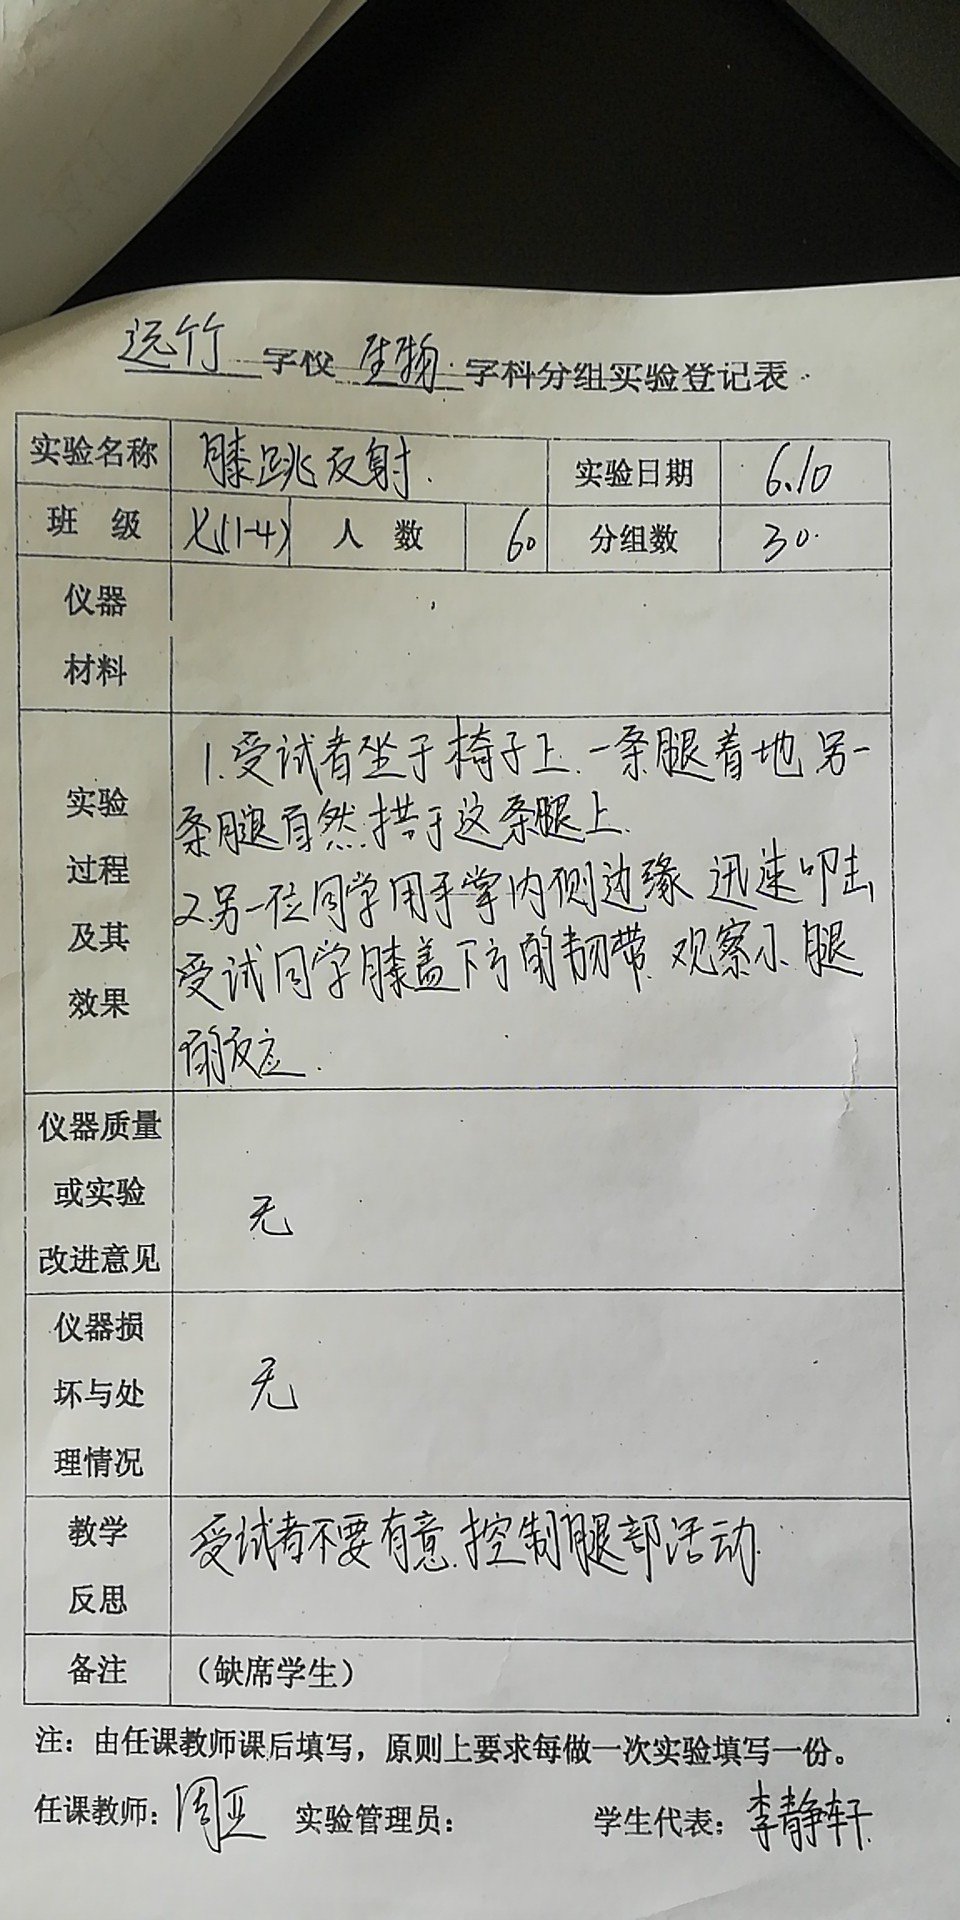 远竹 学校 生物 学科分组实验登记表
实验名称 膝跳反射. 实验日期 6.10
班 级 七(1-4) 人 数 60 分组数 30.
仪器
材料
实验
过程
及其
效果
1.受试者坐于椅子上.一条腿着地 另一
条腿自然搭于这条腿上.
2.另一位同学用手掌内侧边缘 迅速叩击
受试同学膝盖下方的韧带.观察小腿
的反应.
仪器质量
或实验
改进意见
无
仪器损
坏与处
理情况
无
教学
反思
受试者不要有意.控制腿部活动.
备注 （缺席学生）
注：由任课教师课后填写，原则上要求每做一次实验填写一份。
任课教师：周亚 实验管理员： 学生代表：李静轩